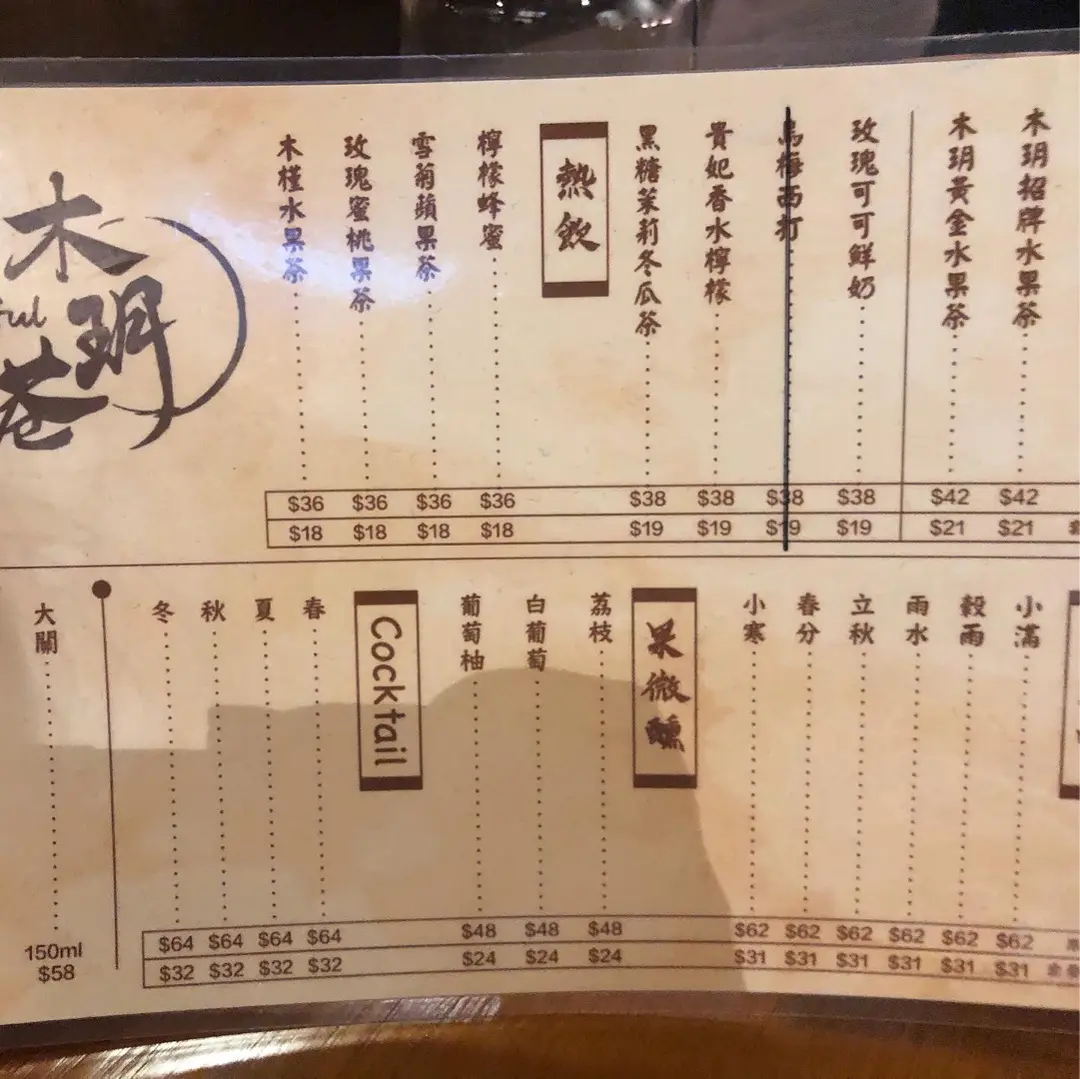 木玥招牌水果茶 $42 $21
木玥黃金水果茶 $42 $21
玫瑰可可鮮奶 $38 $19
烏梅西打 $38 $19
貴妃香水檸檬 $38 $19
黑糖茉莉冬瓜茶 $38 $19
熱飲
檸檬蜂蜜 $36 $18
雪菊蘋果茶 $36 $18
玫瑰蜜桃果茶 $36 $18
木槿水果茶 $36 $18
木玥
ful
小滿 $62 $31
穀雨 $62 $31
雨水 $62 $31
立秋 $62 $31
春分 $62 $31
小寒 $62 $31
果微醺
荔枝 $48 $24
白葡萄 $48 $24
葡萄柚 $48 $24
Cocktail
春 $64 $32
夏 $64 $32
秋 $64 $32
冬 $64 $32
大關 150ml $58